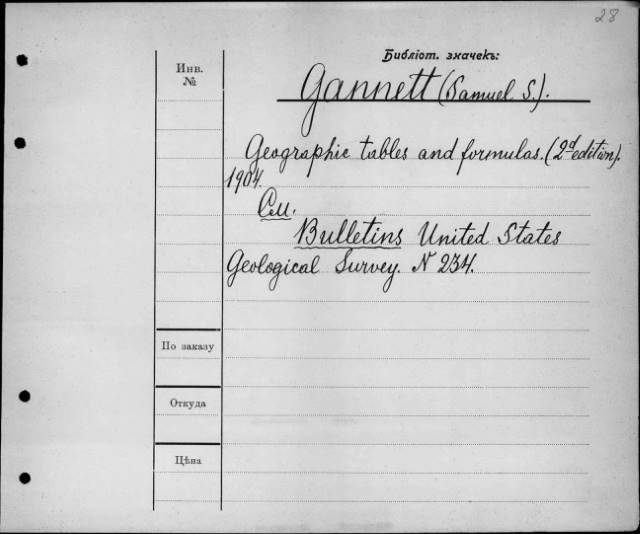 28
Библіот. значекъ:
Инв.
№
Gannett (Samuel S.).
Geographic tables and formulas. (2d edition).
1904.
См.
Bulletins United States
Geological Survey. N 234.
По заказу
Откуда
Цѣна